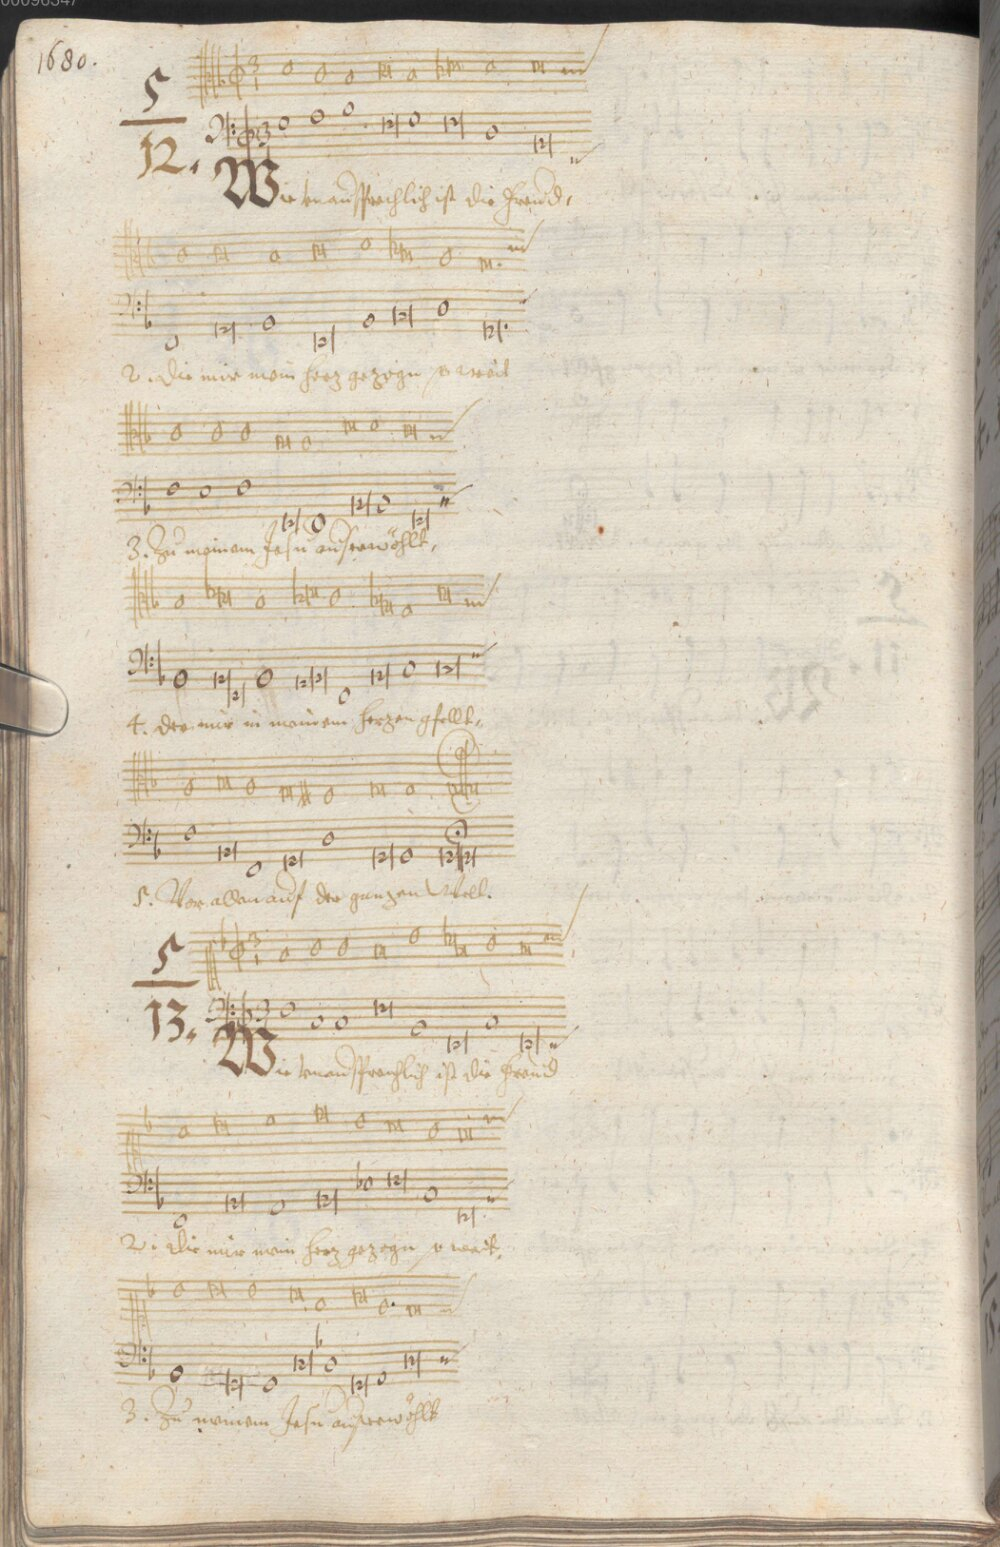 00096347
1680.
5
12.
Wie unaussprechlich ist die Freud,
2. die mir mein herz gezogen
3. Zu meinem Jesu auserwöhlt,
4. der mir in meinem herzen gfellt,
5. Vor allen auf der ganzen Welt.
5
13.
Wie unaussprechlich ist die Freud
2. die mir mein herz gezogen
3. Zu meinem Jesu auserwöhlt